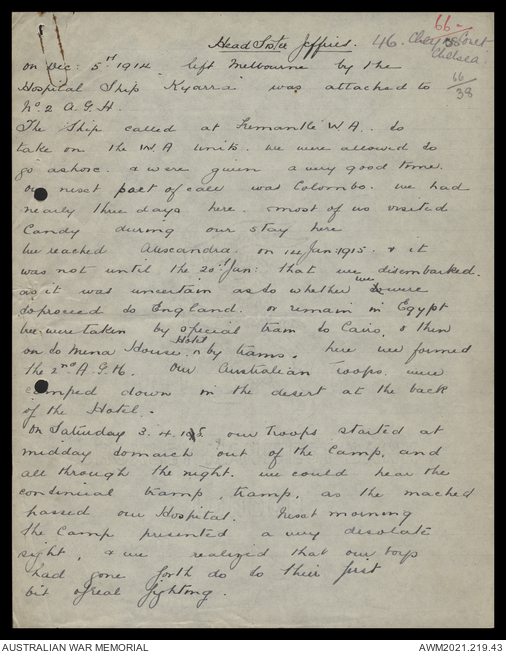 66
Head Sister Jeffries. 46. Cheyne Court
Chelsea
66/38
on Dec: 5th 1914. left Melbourne by the
Hospital Ship Kyarra was attached to
No. 2 A.G.H.
The Ship called at Fremantle W.A. to
take on the WA units. we were allowed to
go ashore. & were given a very good time.
our next port of call was Colombo. we had
nearly three days here. most of us visited
Candy during our stay here
We reached Alexandra. on 14 Jan: 1915. & it
was not until the 20th Jan: that we disembarked.
as it was uncertain as to whether we were
to proceed to England. or remain in Egypt
We were taken by special train to Cairo, & then
on to Mena House Hotel, by trams. here we formed
the 2nd A.G.H. Our Australian Troops were
camped down in the desert at the back
of the Hotel.
On Saturday 3.4.15 our troops started at
midday to march out of the Camp, and
all through the night. we could hear the
continual tramp, tramp, as the mached
passed our Hospital. Next morning
the Camp presented a very desolate
sight, & we realized that our boys
had gone forth do to their first
bit of real fighting.
AUSTRALIAN WAR MEMORIAL
AWM2021.219.43